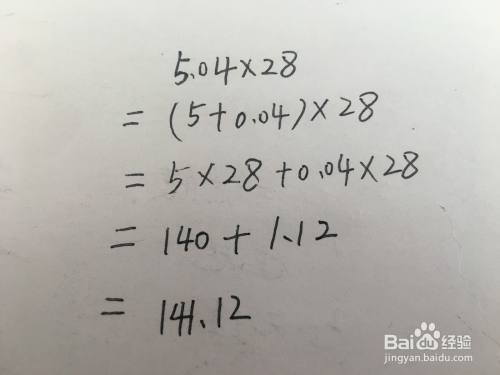 5.04×28
=(5+0.04)×28
=5×28+0.04×28
=140+1.12
=141.12
Bai 经验
jingyan.baidu.com